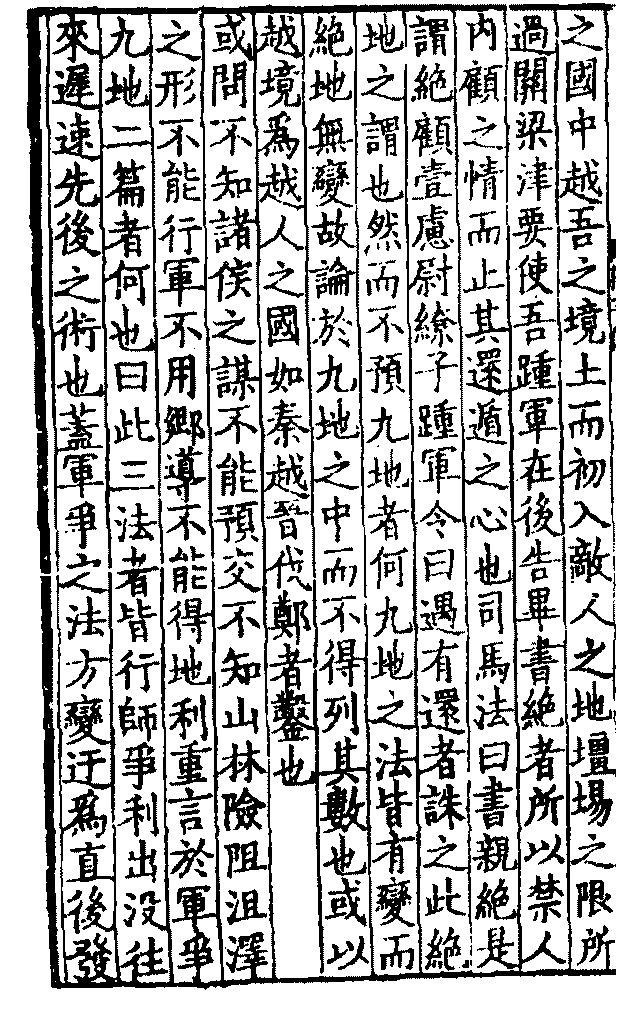 之國中越吾之境土而初入敵人之地壃場之限所
過關梁津要使吾踵軍在後告畢書絶者所以禁人
内顧之情而止其還遁之心也司馬法曰書親絶是
謂絶顧壹慮尉繚子踵軍令曰遇有還者誅之此絶
地之謂也然而不預九地者何九地之法皆有變而
絶地無變故論於九地之中而不得列其數也或以
越境爲越人之國如秦越晉伐鄭者鑿也
或問不知諸侯之謀不能預交不知山林險阻沮澤
之形不能行軍不用鄉導不能得地利重言於軍爭
九地二篇者何也曰此三法者皆行師爭利出没往
來遲速先後之術也蓋軍爭之法方變迂爲直後發